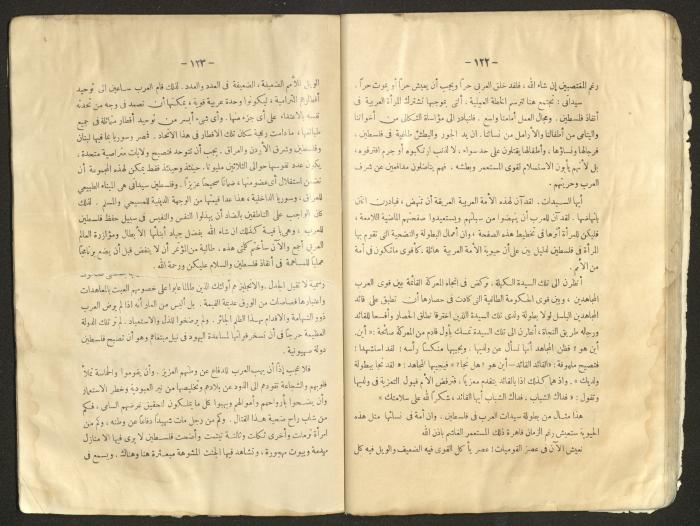 — ١٢٢ —
رغم المغتصبين إن شاء الله ، فلقد خلق العربى حراً ويجب أن يعيش حراً أو يموت حراً .
سيداتى : نجتمع هنا لنرسم الخطة العملية ، أتى بموجبها تشترك المرأة العربية فى
أنقاذ فلسطين . ومجال العمل أمامنا واسع . فلنبادر الى مؤاساة الثكالى من أخواتنا
واليتامى من أطفالنا والأرامل من نسائنا . إن يد الجور والبطش طاغية فى فلسطين ،
فرجالها ونساؤها ، وأطفالها يقتلون على حد سواء . لا لذنب ارتكبوه أو جرم اقترفوه ،
بل لأنهم يأبون الاستسلام لقوى المستعمر وبطشه . فهم يناضلون مدافعين عن شرف
العرب وحريتهم .
أيها السيدات . لقد آن لهذه الأمة العربية العريقة أن تنهض ، فبادرن انتن
بإنهاضها . لقد آن للعرب أن ينهضوا من سباتهم ويستعيدوا صفحتهم الماضية اللامعة ،
فليكن للمرأة أثرها فى تخطيط هذه الصفحة ، وان أعمال البطولة والتضحية التى تقوم بها
المرأة فى فلسطين لدليل بين على أن حيوية الأمة العربية هائلة . كأقوى ماتكون فى أمة
من الأمم .
أنظرن الى تلك السيدة النبيلة . تركض فى اتجاه المعركة القائمة بين قوى العرب
المجاهدين ، وبين قوى الحكومة الطاغية التى كادت فى حصارها أن تطبق على قائد
المجاهدين الباسل لولا بطولة ولدى تلك السيدة اللذين اخترقا نطاق الحصار وأفسحا للقائد
ورجاله طريق النجاة ، أنظرن الى تلك السيدة تمسك بأول قادم من المعركة صائحة : « أين
أين هو ؟ فظن المجاهد أنها تسأل عن ولديها . ويجيبها منكساً رأسه : لقد استشهدا :
فتصيح ملهوفة : « القائد القائد — أين هو ؟ هل نجا » فيجيبها المجاهد : « لقد نجا ببطولة
ولديك » . واذ هما كذلك اذا بالقائد يتقدم معزياً ، فترفض الأم قبول التعزية فى ولديها
وتقول : « فداك الشباب . فداك الشباب أيها القائد ، شكراً لله على سلامتك » .
هذا مثال من بطولة سيدات العرب فى فلسطين . وان أمة فى نسائها مثل هذه
الحيوية ستعيش رغم الزمان قاهرة ذلك المستعمر الغاشم باذن الله
نعيش الآن فى عصر القوميات : عصر يأكل القوى فيه الضعيف والويل فيه كل
— ١٢٣ —
الويل للأمم الضعيفة ، الضعيفة فى العدد والعدد . لذلك قام العرب ساعين الى توحيد
أقطارهم المترامية ، ليكونوا وحدة عربية قوية ، يمكنها أن تصمد فى وجه من تحدثه
نفسه بالاعتداء على أى جزء منها . وأى شىء أيسر من توحيد أقطار متماثلة فى جميع
طبائعها ، ما دامت رغبة سكان تلك الاقطار فى هذا الاتحاد . فمصر وسوريا بما فيها لبنان
وفلسطين وشرق الأردن والعراق . يجب أن تتوحد فتصبح ولايات متراصة متحدة ،
يكون عدد نفوسها حوالى الثلاثين مليونا . حينئذ وحينئذ فقط يمكن لهذه المجموعة أن
تضمن استقلال أى عضو منها ، ضماناً صحيحاً عزيزاً . وفلسطين سيداتى هى الميناء الطبيعى
للعراق ، وسوريا الداخلية ، هذا عدا قيمتها من الوجهة الدينية للمسيحى والمسلم . لذلك
كان الواجب على الناطقين بالضاد أن يبذلوا النفس والنفيس فى سبيل حفظ فلسطين
للعرب ، وهى باقية كذلك إن شاء الله بفضل جهاد أبنائها الأبطال ومؤازرة العالم
العربى أجمع والآن سأختم كلمتى هذه . طالبة من المؤتمر أن لا ينفض قبل أن يضع برنامجاً
عملياً للمساهمة فى أنقاذ فلسطين والسلام عليكن ورحمة الله .
رسمية لا تقبل الجدل . والانجليز هم أولئك الذين طالما عابوا على خصومهم العبث بالمعاهدات
واعتبارها قصاصات من الورق عديمة القيمة . بل أليس من العار أنه اذا لم يرض العرب
ذوو الشهامة والاقدام بهذا الظلم الجائر . ولم يرضخوا للذل والاستعباد . لم تر تلك الدولة
العظيمة حرجاً فى أن تسخر قواتها لمساعدة اليهود فى نيل مبتغاهم وهو أن تصبح فلسطين
دولة صهيونية .
فلا عجب إذاً أن يهب العرب للدفاع عن وطنهم العزيز . وأن يقوموا والحماسة تملأ
قلوبهم والشجاعة تقودهم الى الذود عن بلادهم وتخليصها من نير العبودية وخطر الاستعمار
وأن يضحوا بأرواحهم وأموالهم ويهبوا كل ما يملكون لتحقيق غرضهم السامى . فكم
من شاب راح ضحية هذا القتال . وكم من رجل مات شهيداً دفاعاً عن وطنه ، وكم من
امرأة ترملت وأخرى ثكلت وثالثة تيتمت وأضحت فلسطين لا يرى فيها الا منازل
مهدمة وبيوت مهجورة ، وتشاهد فيها الجثث المشوهة مبعثرة هنا وهناك . ويسمع فى